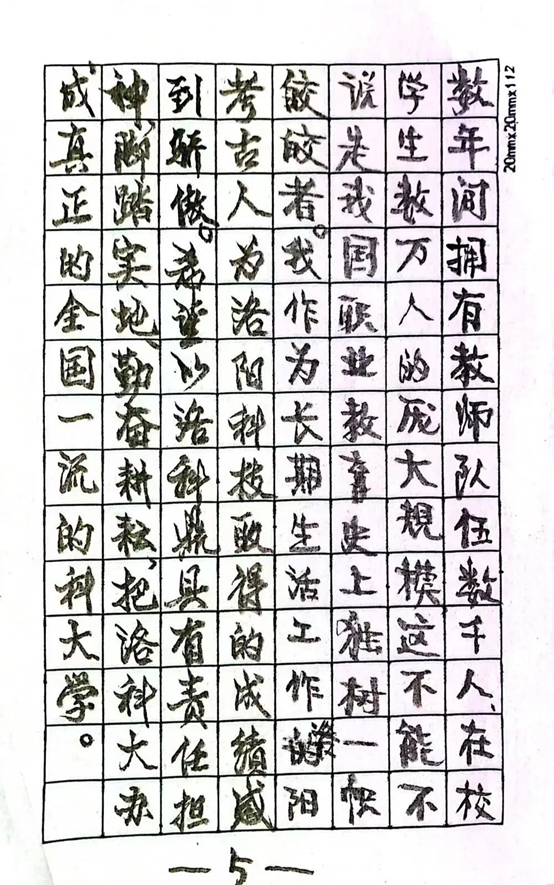 数年间拥有教师队伍数千人、在校
学生数万人的庞大规模这不能不
说是我国职业教育史上独树一帜
皎皎者。我作为长期生活工作的阳
考古人为洛阳科技取得的成绩感
到骄傲。希望以洛科具有责任担
神、脚踏实地、勤奋耕耘、把洛科大办
成真正的全国一流的科大学。
20mmx20mmx112
—5—